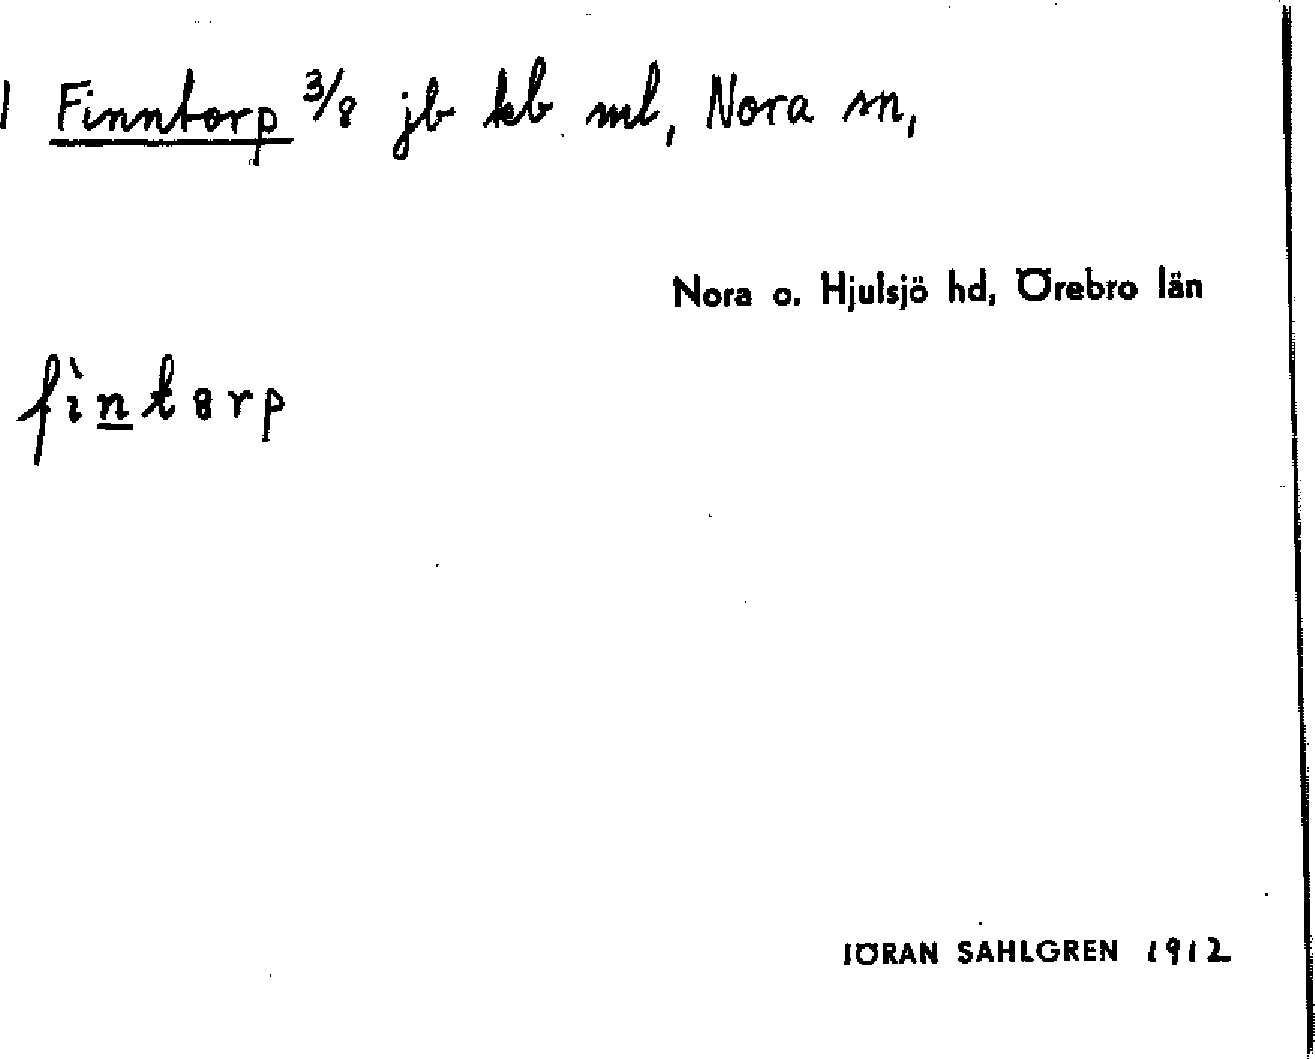 1 Finntorp 3/8 jb kb ml, Nora sn,
Nora o. Hjulsjö hd, Örebro län
fìntɞrp
JÖRAN SAHLGREN 1912